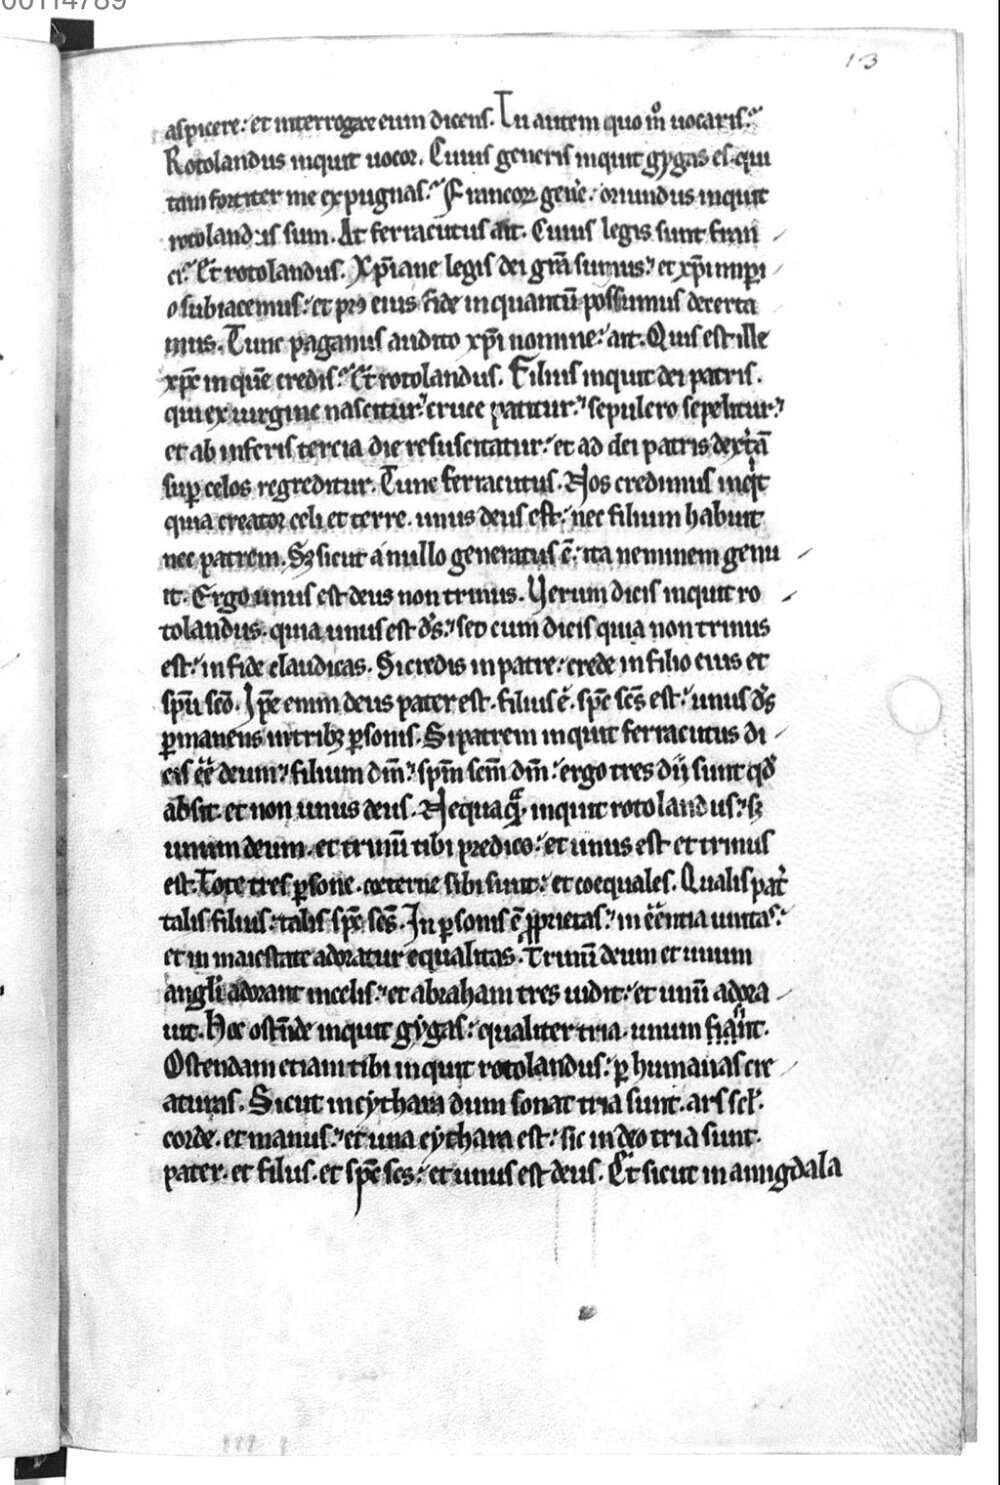 00114789
13
aspicere: et interrogare eum dicens. Tu autem quo m̊ uocaris?
Rotolandus inquit uocor. Cuius generis inquit gygas es. qui
tam fortiter me expugnas? Francoꝝ gene͛: oriundus inquit
rotolandus sum. At ferracutus ait. Cuius legis sunt fran
ci? Et rotolandus. Xp̄iane legis dei gr̄a sumus: et xp̄i imp̄i
o subiacemus: et pro eius fide inquantū possumus decerta
mus. Tunc paganus audito xp̄i nomine: ait. Quis est ille
xp̄c in quē credis? Et rotolandus. Filius inquit dei patris.
qui ex uirgine nascitur: cruce patitur: sepulcro sepelitur:
et ab inferis tercia die resuscitatur: et ad dei patris dext͛ā
sup̱ celos regreditur. Tunc ferracutus. Nos credimus inqͥt
quia creator celi et terre. unus deus est: nec filium habuit
nec patrem. Sꝫ sicut a nullo generatus ē: ita neminem genu
it. Ergo unus est deus non trinus. Verum dicis inquit ro
tolandus. quia unus est d̄s: sed cum dicis quia non trinus
est: in fide claudicas. Si credis in patre: crede in filio eius et
sp̄u sc̄o. Ip̄e enim deus pater est. filius ē. sp̄c sc̄s est: unus d̄s
ꝑmanens in tribꝫ ꝑsonis. Si patrem inquit ferracutus di
cis ēē deum: filium dm̄: sp̄m scm̄ dm̄: ergo tres dij sunt qd̄
absit. et non unus deus. Nequaqͣꝫ inquit rotolandus: sꝫ
unum deum. et trinū tibi predico: et unus est et trinus
est. Tote tres ꝑsone. coeterne sibi sunt: et coequales. Qualis pat͛
talis filius: talis sp̄c sc̄s. In ꝑsonis ē ꝓprietas: in ēēntia unitas:
et in maiestate adoratur equalitas. Trinū deum et unum
angli adorant in celis: et abraham tres uidit: et unū adora
uit. Hoc ostende inquit gygas: qualiter tria. unum fiant.
Ostendam etiam tibi inquit rotolandus: ꝑ humanas cre
aturas. Sicut in cythara dum sonat tria sunt. ars scl̄.
corde. et manus: et una cythara est: sic in deo tria sunt.
pater. et filius. et sp̄c scs: et unus est deus. Et sicut in amigdala